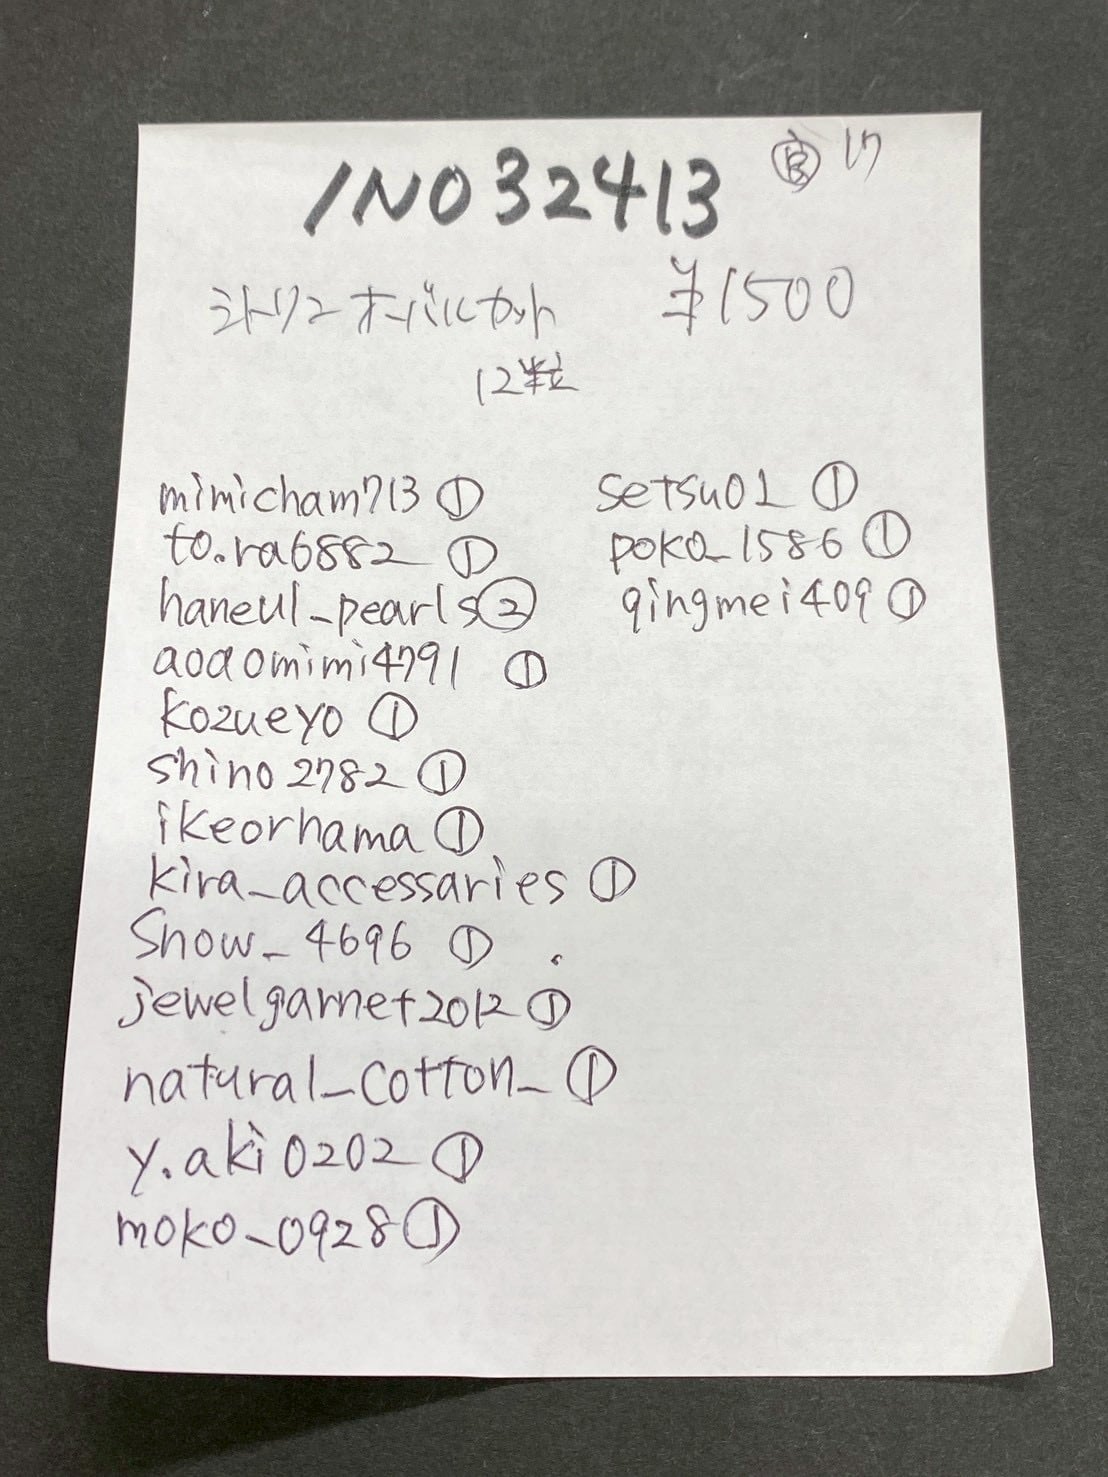 INO32413
17
シトリンオーバルカット ¥1500
12粒
mimicham713 ①
to.ra6882 ①
haneul_pearls②
aoaomimi4791 ①
kozueyo ①
shino2782 ①
ikeorhama ①
kira_accessaries ①
Snow_4696 ①
jewelgarnet2012 ①
natural_cotton_ ①
y.aki0202 ①
moko_0928①
setsu01 ①
poko_1586 ①
qingmei409 ①